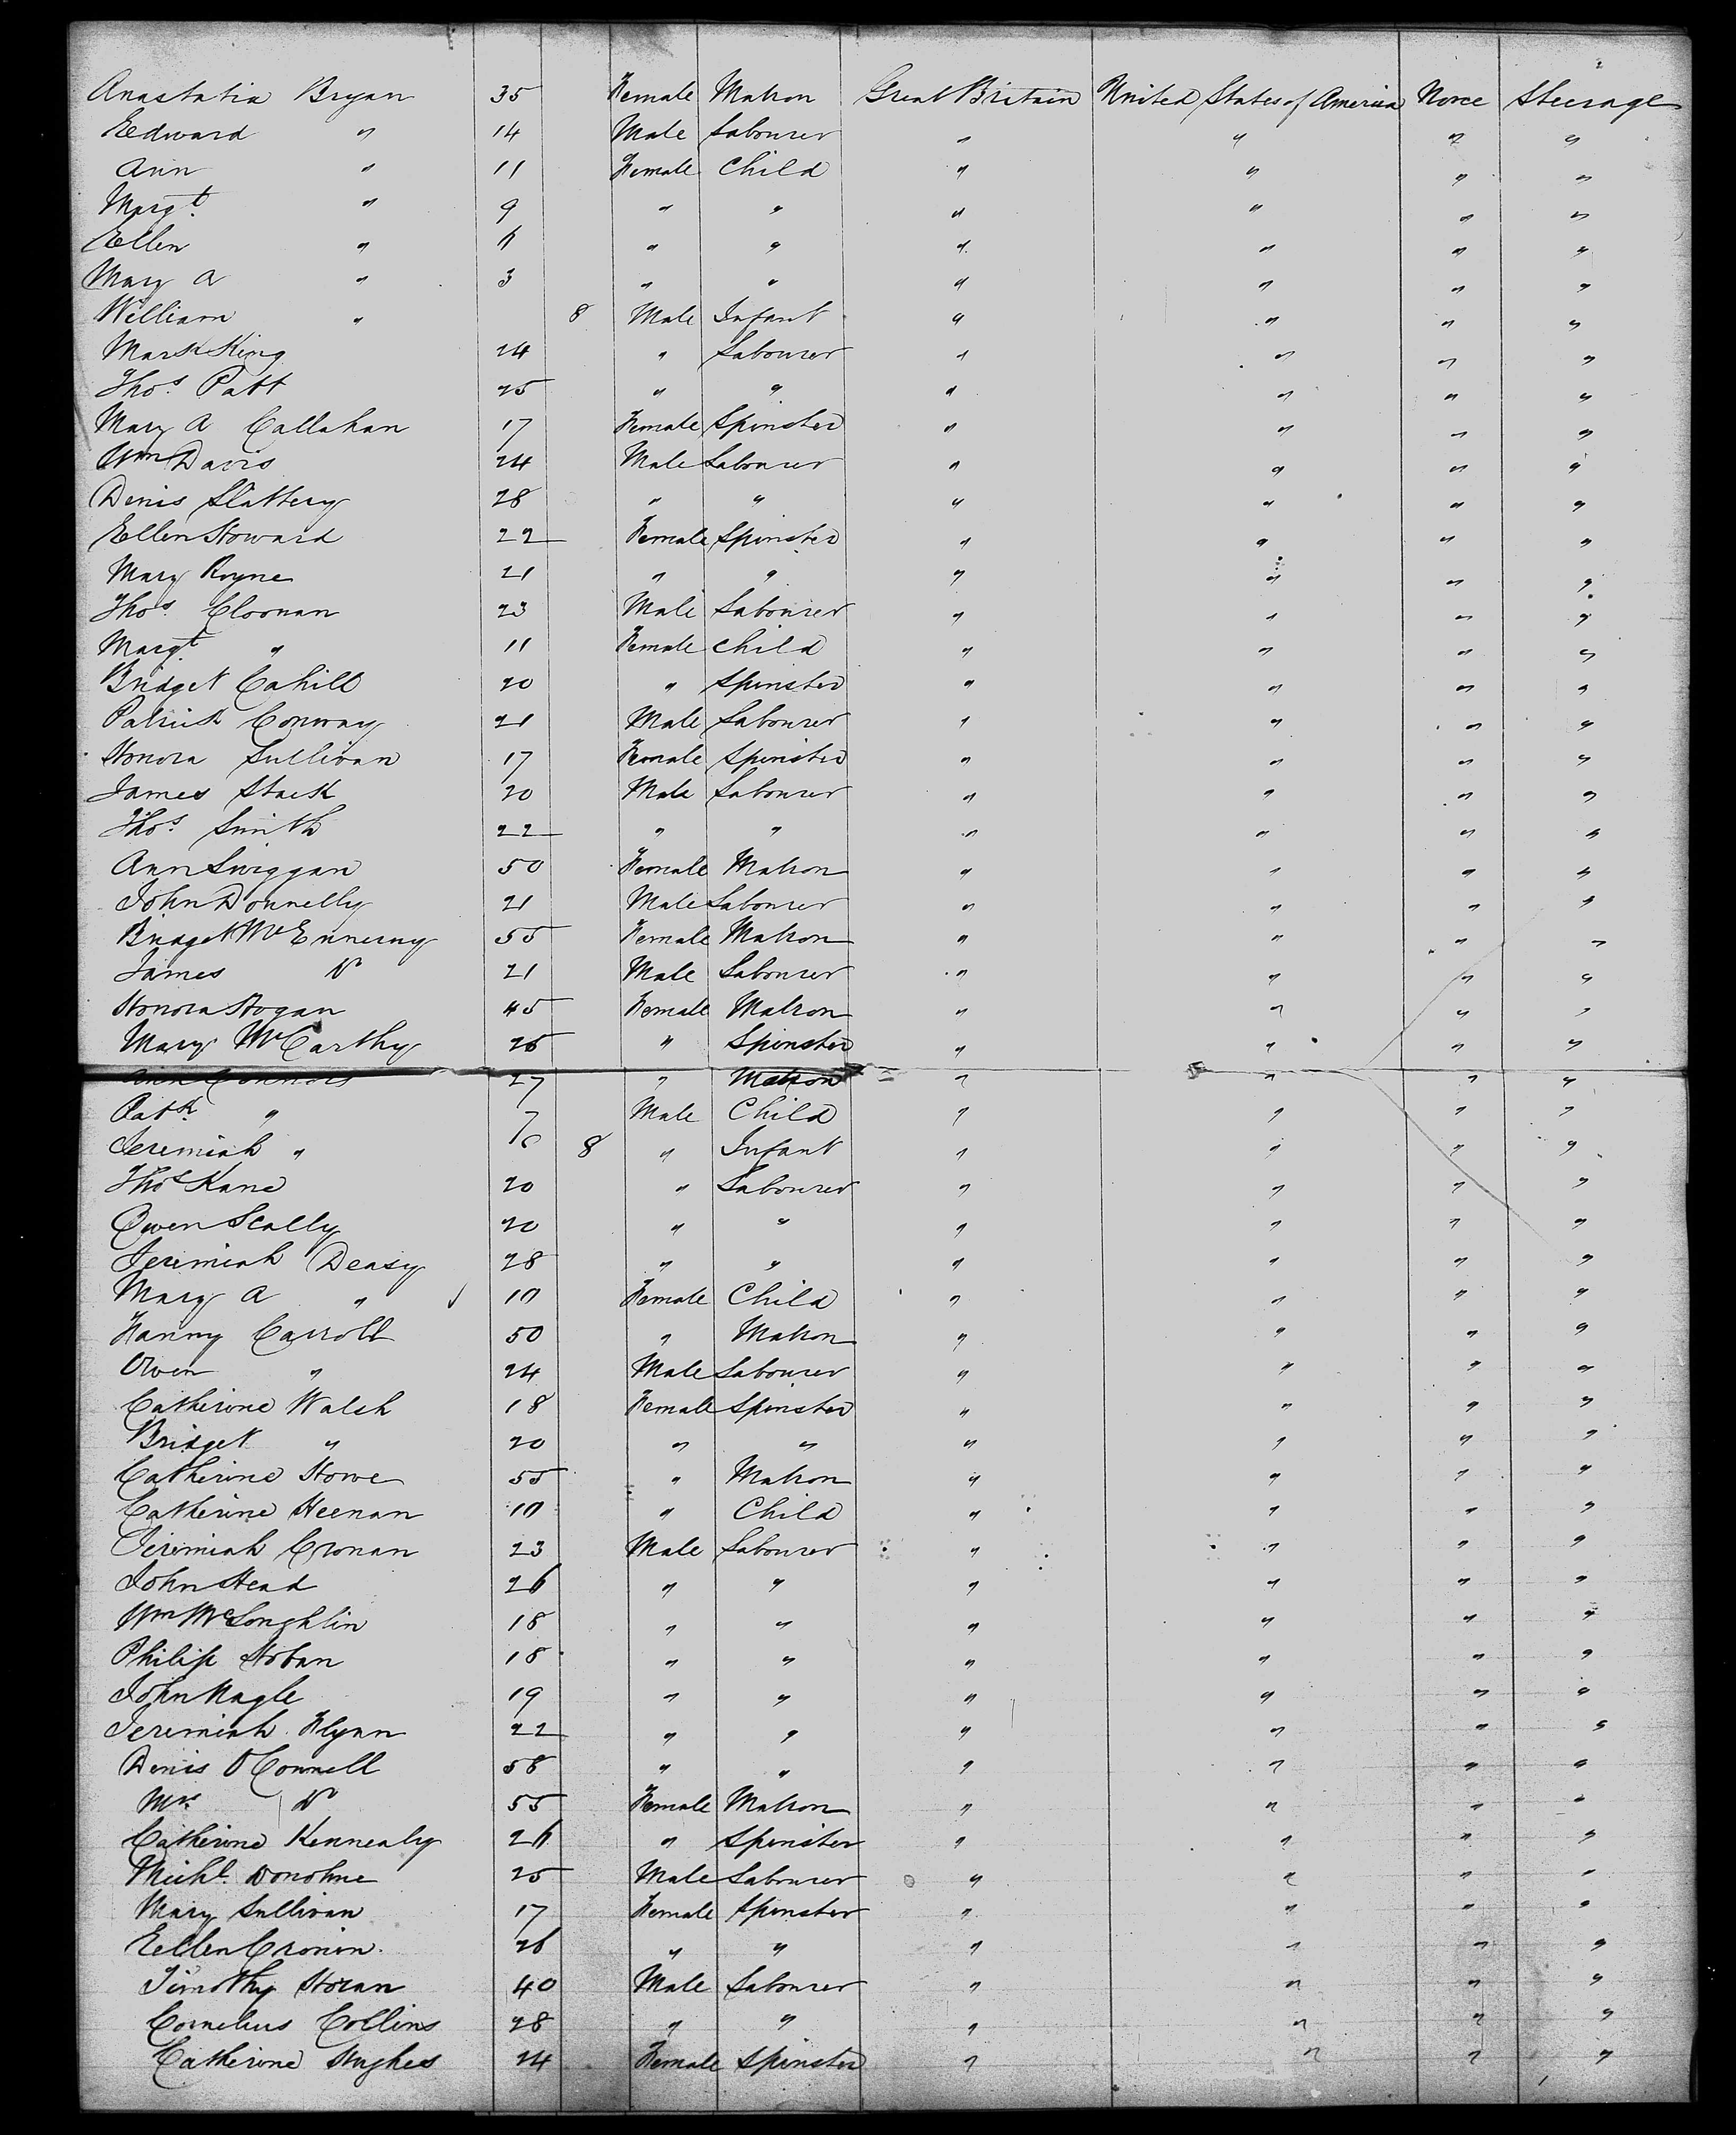 Anastatia Bryan 35 Female Matron Great Britain United States of America None Steerage
Edward " 14 Male Labourer " " " "
Ann " 11 Female Child " " " "
Margt " 9 " " " " " "
Ellen " 6 " " " " " "
Mary A " 3 " " " " " "
William " 8 Male Infant " " " "
Mark King 24 " Labourer " " " "
Thos Patt 25 " " " " " "
Mary A Callahan 17 Female Spinster " " " "
Wm Davis 24 Male Labourer " " " "
Denis Slattery 28 " " " " " "
Ellen Howard 22 Female Spinster " " " "
Mary Ryne 21 " " " " " "
Thos Cloonan 23 Male Labourer " " " "
Margt " 11 Female Child " " " "
Bridget Cahill 20 " Spinster " " " "
Patrick Conway 21 Male Labourer " " " "
Honora Sullivan 17 Female Spinster " " " "
James Stack 20 Male Labourer " " " "
Thos Smith 22 " " " " " "
Ann Swiggan 50 Female Matron " " " "
John Donnelly 21 Male Labourer " " " "
Bridget McEnnerny 55 Female Matron " " " "
James Do 21 Male Labourer " " " "
Honora Hogan 45 Female Matron " " " "
Mary McCarthy 25 " Spinster " " " "
Ann Connors 27 " Matron " " " "
Patk " 7 Male Child " " " "
Jeremiah " 8 " Infant " " " "
Thos Kane 20 " Labourer " " " "
Owen Scally 20 " " " " " "
Jeremiah Deasy 28 " " " " " "
Mary A " 10 Female Child " " " "
Fanny Carroll 50 " Matron " " " "
Owen " 24 Male Labourer " " " "
Catherine Walsh 18 Female Spinster " " " "
Bridget " 20 " " " " " "
Catherine Howe 55 " Matron " " " "
Catherine Heenan 10 " Child " " " "
Jeremiah Cronan 23 Male Labourer " " " "
John Head 26 " " " " " "
Wm McLoughlin 18 " " " " " "
Philip Hoban 18 " " " " " "
John Nagle 19 " " " " " "
Jeremiah Flynn 22 " " " " " "
Denis O'Connell 58 " " " " " "
Mrs Do 55 Female Matron " " " "
Catherine Kennealy 26 " Spinster " " " "
Michl Donohue 25 Male Labourer " " " "
Mary Sullivan 17 Female Spinster " " " "
Ellen Cronin 26 " " " " " "
Timothy Horan 40 Male Labourer " " " "
Cornelius Collins 28 " " " " " "
Catherine Hughes 24 Female Spinster " " " "